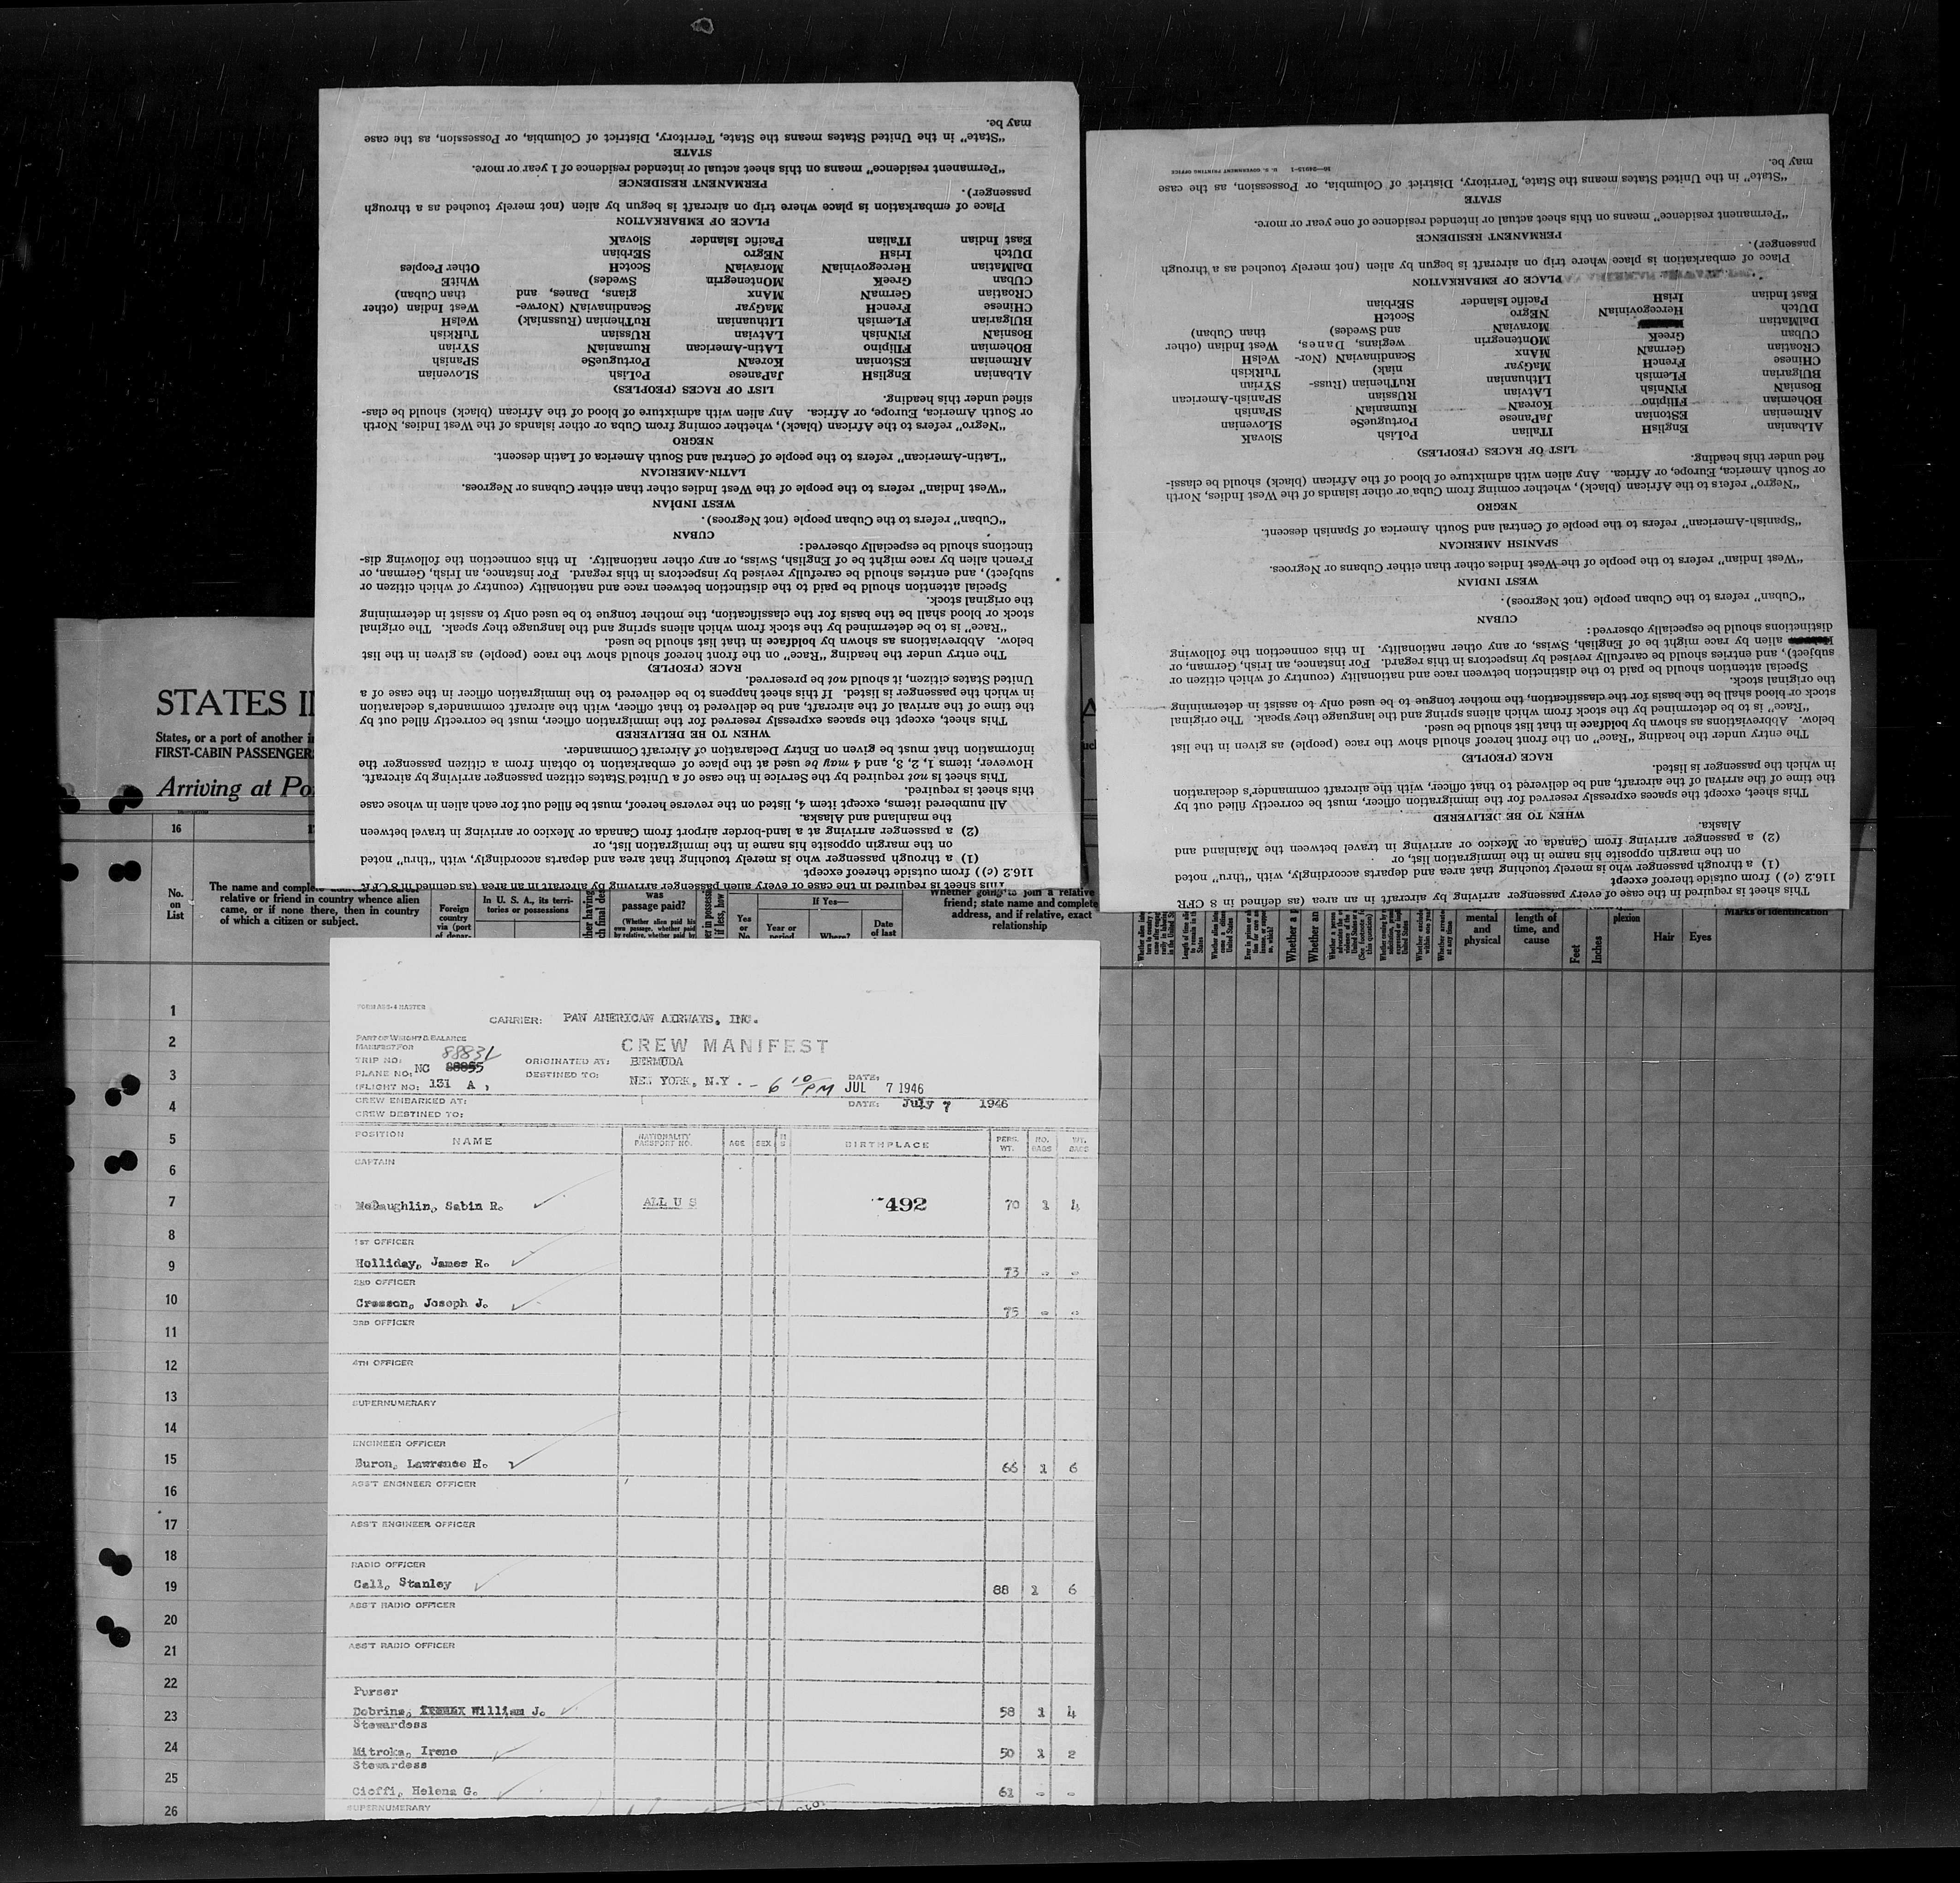 This sheet is required in the case of every alien passenger arriving by aircraft in an area (as defined in 8 CFR
116.2 (c)) from outside thereof except
(1) a through passenger who is merely touching that area and departs accordingly, with "thru" noted
on the margin opposite his name in the immigration list, or
(2) a passenger arriving at a land-border airport from Canada or Mexico or arriving in travel between
the mainland and Alaska.
All numbered items, except item 4, listed on the reverse hereof, must be filled out for each alien in whose case
this sheet is required.
This sheet is not required by the Service in the case of a United States citizen passenger arriving by aircraft.
However, items 1, 2, 3, and 4 may be used at the place of embarkation to obtain from a citizen passenger the
information that must be given on Entry Declaration of Aircraft Commander.
WHEN TO BE DELIVERED
This sheet, except the spaces expressly reserved for the immigration officer, must be correctly filled out by
the time of the arrival of the aircraft, and be delivered to that officer, with the aircraft commander's declaration
in which the passenger is listed. If this sheet happens to be delivered to the immigration officer in the case of a
United States citizen, it should not be preserved.
RACE (PEOPLE)
The entry under the heading "Race" on the front hereof should show the race (people) as given in the list
below. Abbreviations as shown by boldface in that list should be used.
"Race" is to be determined by the stock from which aliens spring and the language they speak. The original
stock or blood shall be the basis for the classification, the mother tongue to be used only to assist in determining
the original stock.
Special attention should be paid to the distinction between race and nationality (country of which citizen or
subject), and entries should be carefully revised by inspectors in this regard. For instance, an Irish, German, or
French alien by race might be of English, Swiss, or any other nationality. In this connection the following dis-
tinctions should be especially observed:
CUBAN
"Cuban" refers to the Cuban people (not Negroes).
WEST INDIAN
"West Indian" refers to the people of the West Indies other than either Cubans or Negroes.
LATIN-AMERICAN
"Latin-American" refers to the people of Central and South America of Latin descent.
NEGRO
"Negro" refers to the African (black), whether coming from Cuba or other islands of the West Indies, North
or South America, Europe, or Africa. Any alien with admixture of blood of the African (black) should be clas-
sified under this heading.
LIST OF RACES (PEOPLES)
ALbAnian EngliSH JaPanese PoLish SLOvenian
ARMenian EStonian KoreaN PortugueSe SPanish
BOhemian FIlipino LAtin-American RumaniaN SYrian
BosniaN FiNnish LATvian RUssian TuRkish
BUlgarian FLemish LIthuanian RuThenian (Russniak) WelsH
CHinese FrencH MaGyar ScandinaviaN (Norwe- West Indian (other
CRoatian GermaN MAnx gians, Danes, and than Cuban)
CUban GreeK MOntenegrin Swedes) WhitE
DalMatian HercegoviniaN MoraviaN ScotcH Other Peoples
DUtch IrisH NEgro SErbian
East Indian ITalian Pacific Islander SlovaK
PLACE OF EMBARKATION
Place of embarkation is place where trip on aircraft is begun by alien (not merely touched as a through
passenger).
PERMANENT RESIDENCE
"Permanent residence" means on this sheet actual or intended residence of 1 year or more.
STATE
"State" in the United States means the State, Territory, District of Columbia, or Possession, as the case
may be.
This sheet is required in the case of every passenger arriving by aircraft in an area (as defined in 8 CFR
116.2 (c)) from outside thereof except
(1) a through passenger who is merely touching that area and departs accordingly, with "thru" noted
on the margin opposite his name in the immigration list, or
(2) a passenger arriving from Canada or Mexico or arriving in travel between the Mainland and
Alaska.
WHEN TO BE DELIVERED
This sheet, except the spaces expressly reserved for the immigration officer, must be correctly filled out by
the time of the arrival of the aircraft, and be delivered to that officer, with the aircraft commander's declaration
in which the passenger is listed.
RACE (PEOPLE)
The entry under the heading "Race" on the front hereof should show the race (people) as given in the list
below. Abbreviations as shown by boldface in that list should be used.
"Race" is to be determined by the stock from which aliens spring and the language they speak. The original
stock or blood shall be the basis for the classification, the mother tongue to be used only to assist in determining
the original stock.
Special attention should be paid to the distinction between race and nationality (country of which citizen or
subject), and entries should be carefully revised by inspectors in this regard. For instance, an Irish, German, or
alien by race might be of English, Swiss, or any other nationality. In this connection the following
distinctions should be especially observed:
CUBAN
"Cuban" refers to the Cuban people (not Negroes).
WEST INDIAN
"West Indian" refers to the people of the West Indies other than either Cubans or Negroes.
SPANISH AMERICAN
"Spanish-American" refers to the people of Central and South America of Spanish descent.
NEGRO
"Negro" refers to the African (black), whether coming from Cuba or other islands of the West Indies, North
or South America, Europe, or Africa. Any alien with admixture of blood of the African (black) should be classi-
fied under this heading.
LIST OF RACES (PEOPLES)
ALbAnian EngliSH ITalian PoLish SlovaK
ARmenian EStonian JaPanese PortugueSe SLOvenian
BOhemian FIlipino KoreaN RumaniaN SPanish
BosniaN FiNnish LATvian RUssian SPanish-American
BUlgarian FLemish LIthuanian RuThenian (Russ- SYrian
CHinese FrencH MaGyar niak) TuRkish
CRoatian GermaN MAnx ScandinaviaN (Nor- WelsH
CUban GreeK MOntenegrin wegians, Danes, West Indian (other
DalMatian MoraviaN and Swedes) than Cuban)
DUtch HercegoviniaN NEgro ScotcH
East Indian IrisH Pacific Islander SErbian
PLACE OF EMBARKATION
Place of embarkation is place where trip on aircraft is begun by alien (not merely touched as a through
passenger).
PERMANENT RESIDENCE
"Permanent residence" means on this sheet actual or intended residence of one year or more.
STATE
"State" in the United States means the State, Territory, District of Columbia, or Possession, as the case
may be.
16—24915-1 U. S. GOVERNMENT PRINTING OFFICE
STATES I
States, or a port of another in
FIRST-CABIN PASSENGER
Arriving at Po
16
No. on List
The name and complete address
relative or friend in country whence alien
came, or if none there, then in country
of which a citizen or subject.
Foreign country via (port of depar-
In U. S. A., its terri-
tories or possessions
was
passage paid?
(Whether alien paid his
own passage, whether paid
by relative, whether paid by
Yes or No
If Yes—
Year or period
Where?
Date of last
Whether going to join a relative
friend; state name and complete
address, and if relative, exact
relationship
mental and physical
length of time, and cause
Feet
Inches
plexion
Hair
Eyes
Marks of identification
1
2
3
4
5
6
7
8
9
10
11
12
13
14
15
16
17
18
19
20
21
22
23
24
25
26
FORM ASG-4 MASTER
CARRIER: PAN AMERICAN AIRWAYS, INC.
PART OF WEIGHT & BALANCE
MANIFEST FOR
CREW MANIFEST
TRIP NO: 88832
ORIGINATED AT: BERMUDA
PLANE NO: NC 88855
DESTINED TO: NEW YORK, N.Y. - 6 10 PM DATE: JUL 7 1946
(FLIGHT NO: 131 A )
CREW EMBARKED AT: DATE: July 7 1946
CREW DESTINED TO:
POSITION NAME NATIONALITY PASSPORT NO. AGE SEX M S BIRTHPLACE PERS. WT. NO. BAGS WT. BAGS
CAPTAIN
McDaughlin, Sabin R. ALL U S 492 70 1 4
1ST OFFICER
Holliday, James R. 73 - -
2ND OFFICER
Cresson, Joseph J. 75 - -
3RD OFFICER
4TH OFFICER
SUPERNUMERARY
ENGINEER OFFICER
Buron, Lawrence H. 66 1 6
ASS'T ENGINEER OFFICER
ASS'T ENGINEER OFFICER
RADIO OFFICER
Call, Stanley 88 1 6
ASS'T RADIO OFFICER
ASS'T RADIO OFFICER
Purser
Dobrins, William J. 58 1 4
Stewardess
Mitroka, Irene 50 1 2
Stewardess
Cioffi, Helena G. 61 - -
SUPERNUMERARY